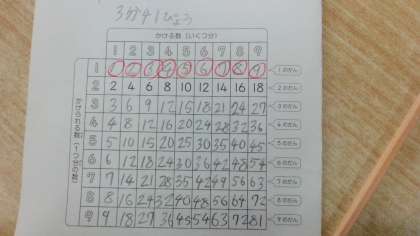 3分41びょう
かける数（いくつ分）
1 2 3 4 5 6 7 8 9
かけられる数（1つ分の数）
1 1 2 3 4 5 6 7 8 9 1のだん
2 2 4 6 8 10 12 14 16 18 2のだん
3 3 6 9 12 15 18 21 24 27 3のだん
4 4 8 12 16 20 24 28 32 36 4のだん
5 5 10 15 20 25 30 35 40 45 5のだん
6 6 12 18 24 30 36 42 48 54 6のだん
7 7 14 21 28 35 42 49 56 63 7のだん
8 8 16 24 32 40 48 56 64 72 8のだん
9 9 18 27 36 45 54 63 72 81 9のだん